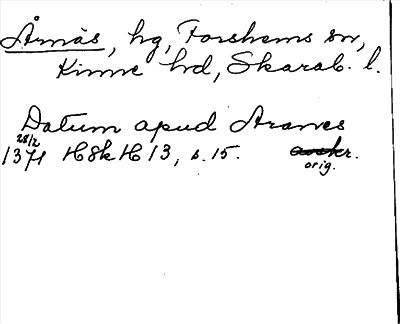 Årnäs, hg, Forshems sn,
Kinne hd, Skarab. l.
Datum apud Aranes
28/2
1371 HSkH 13, s. 15. avskr.
orig.